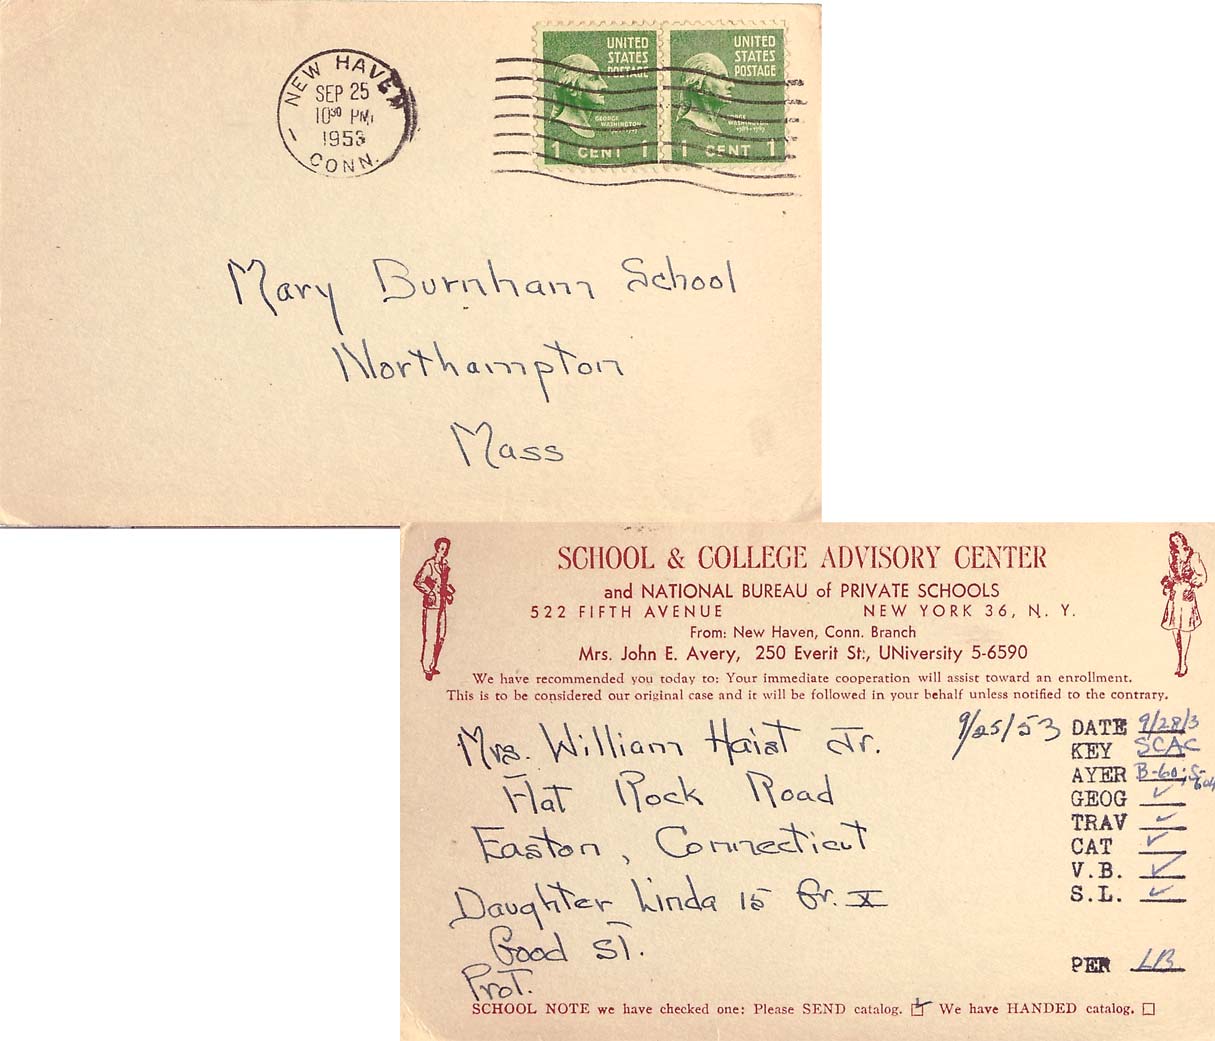 NEW HAVEN
SEP 25
10³⁰ PM
1953
CONN.
UNITED STATES POSTAGE
GEORGE WASHINGTON
1 CENT 1
UNITED STATES POSTAGE
GEORGE WASHINGTON
1789-1797
1 CENT 1
Mary Burnham School
Northampton
Mass
SCHOOL & COLLEGE ADVISORY CENTER
and NATIONAL BUREAU of PRIVATE SCHOOLS
522 FIFTH AVENUE NEW YORK 36, N. Y.
From: New Haven, Conn. Branch
Mrs. John E. Avery, 250 Everit St., UNiversity 5-6590
We have recommended you today to: Your immediate cooperation will assist toward an enrollment.
This is to be considered our original case and it will be followed in your behalf unless notified to the contrary.
9/25/53
Mrs. William Haist Jr.
Flat Rock Road
Easton, Connecticut
Daughter Linda 15 Gr. X
Good ST.
Prot.
DATE 9/28/3
KEY SCAC
AYER B-60;
GEOG ✓
TRAV ✓
CAT ✓
V.B. ✓
S.L. ✓
PER LB
SCHOOL NOTE we have checked one: Please SEND catalog. ☑ We have HANDED catalog. ☐